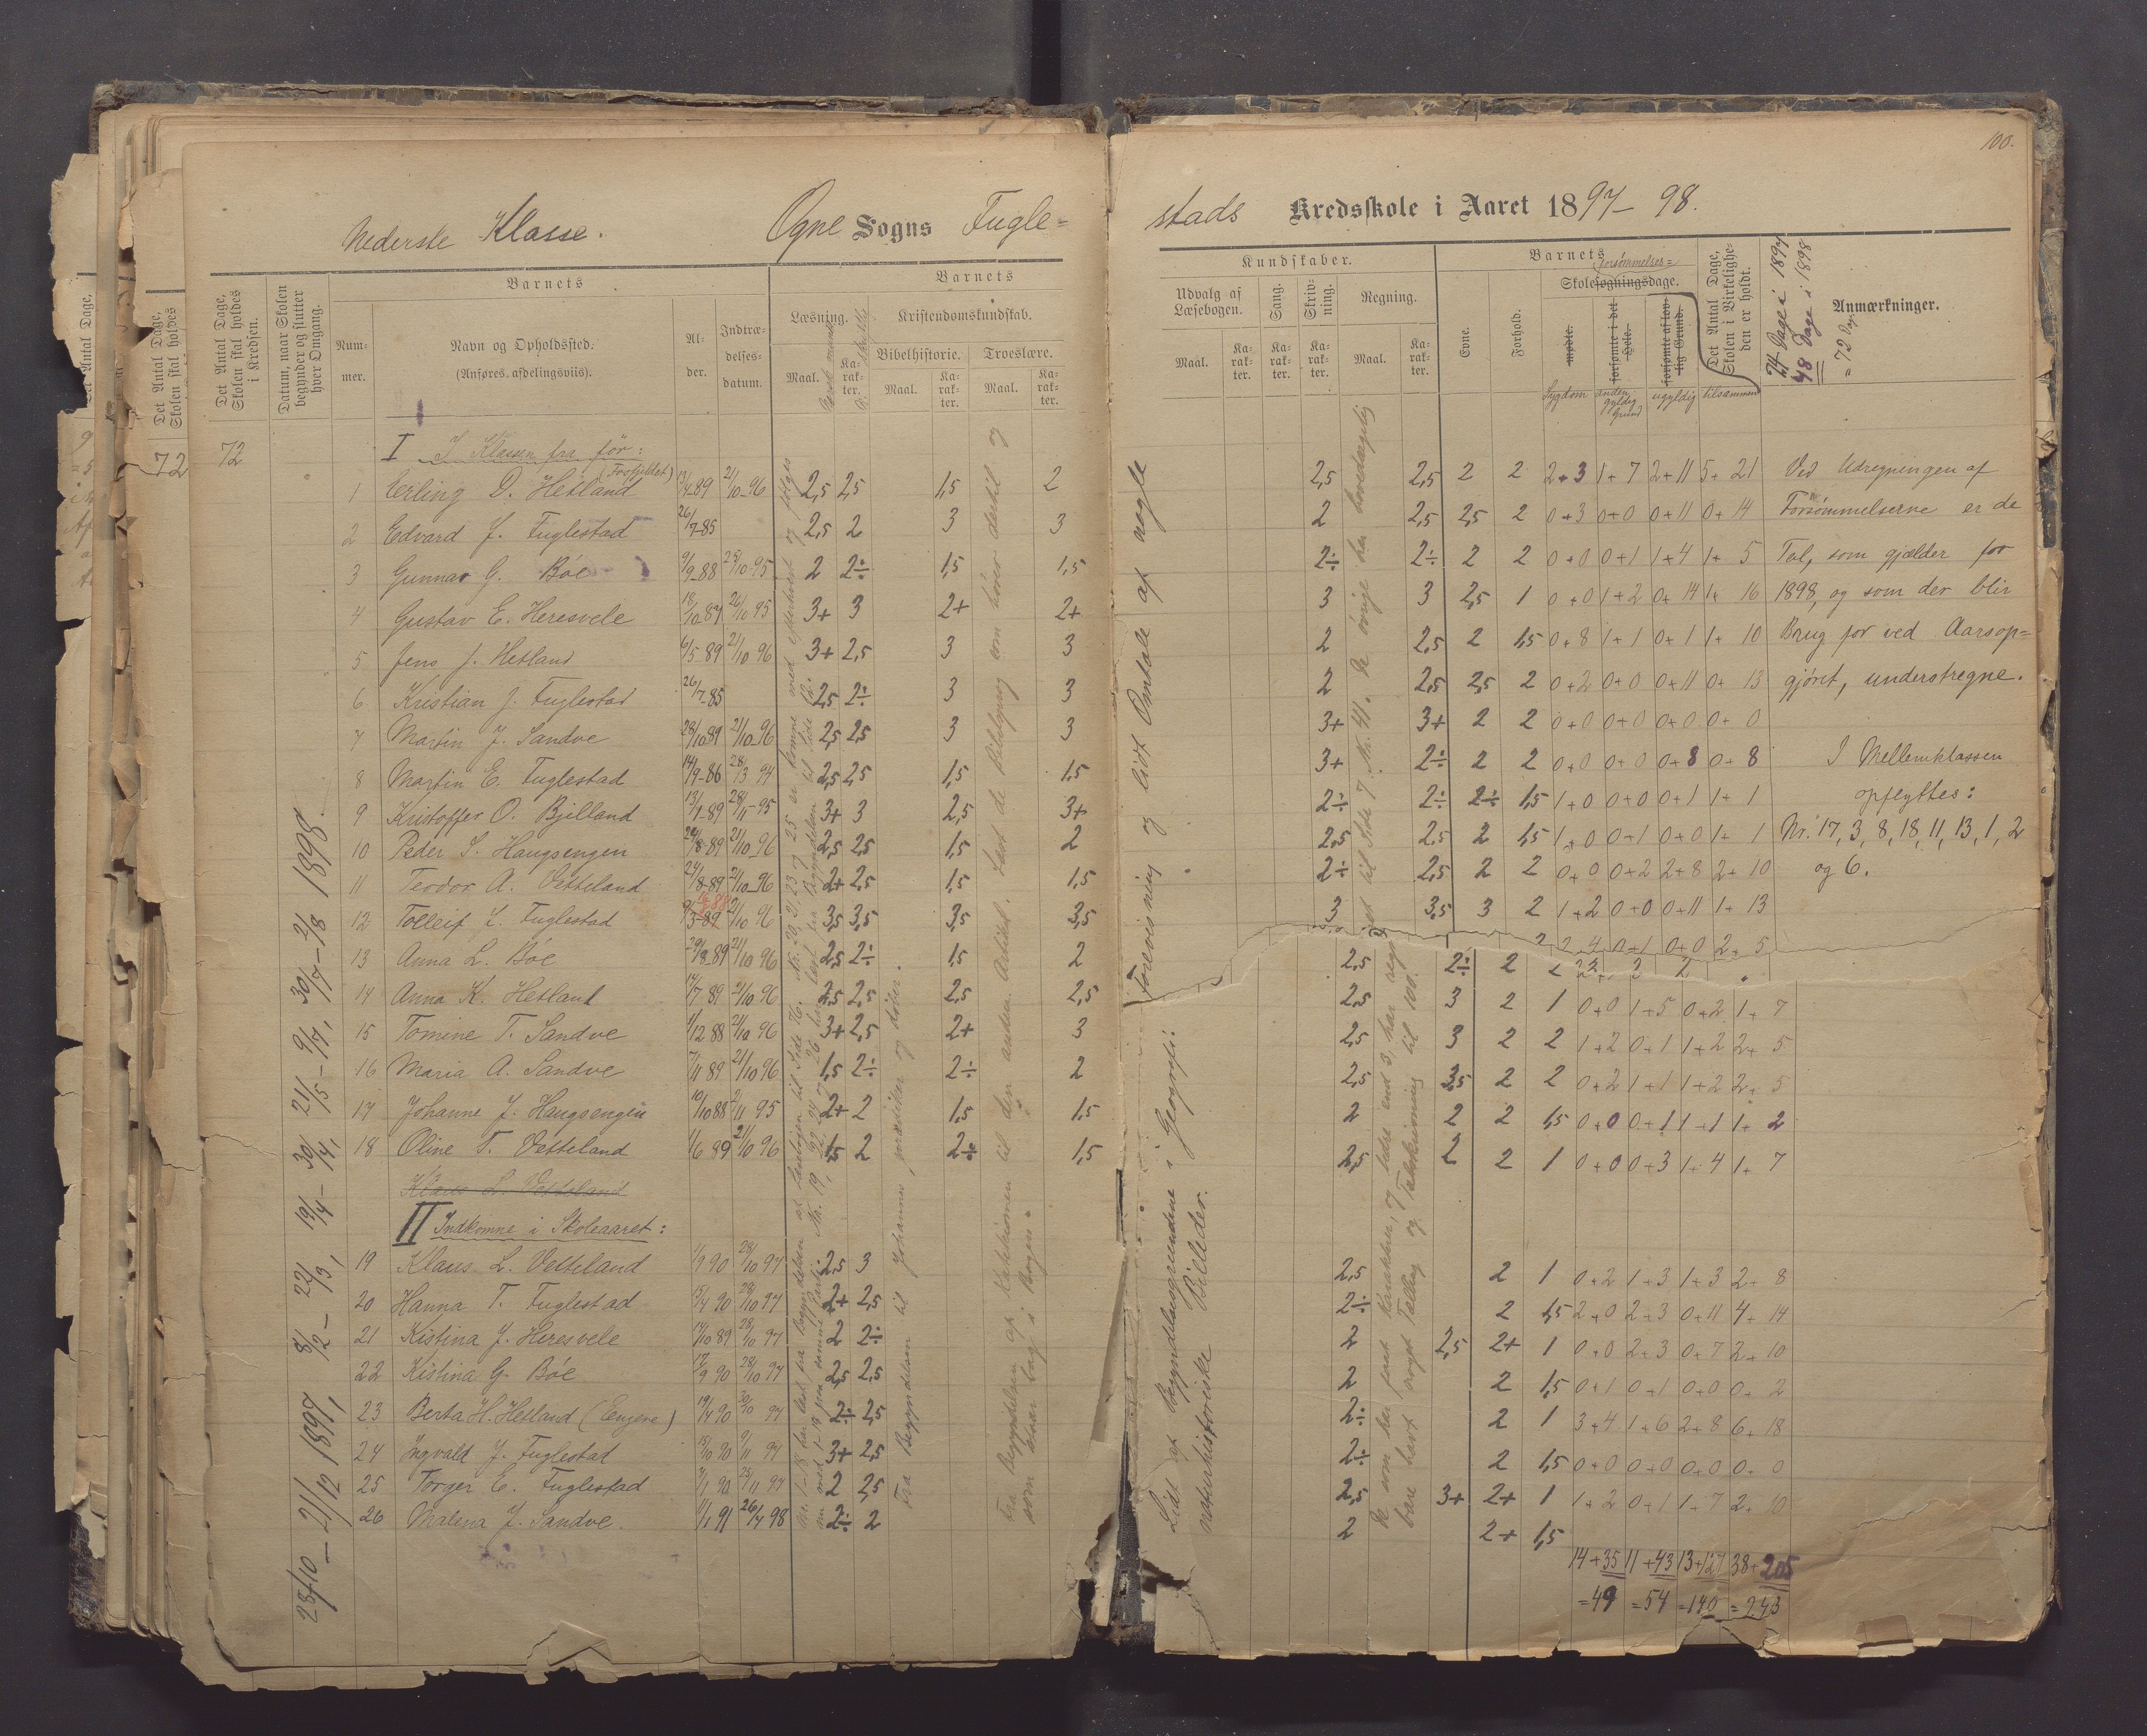 100.
Nederste Klasse. Ogne Sogns Fugle=
stads Kredsskole i Aaret 1897-98.
Det Antal Dage, Skolen skal holdes i Kredsen.
Datum, naar Skolen begynder og slutter hver Omgang.
Barnets
Num-mer.
Navn og Opholdssted.
(Anføres afdelingsviis).
Al-der.
Indtræ-delses-datum.
Barnets
Læsning.
Maal. Ka-rak-ter.
Kristendomskundskab.
Bibelhistorie. Troeslære.
Maal. Ka-rak-ter. Maal. Ka-rak-ter.
Kundskaber.
Udvalg af Læsebogen. Sang. Skriv-ning. Regning.
Maal. Ka-rak-ter. Ka-rak-ter. Ka-rak-ter. Maal. Ka-rak-ter.
Barnets
Evne. Forhold.
Forsømmelses=
Skolesøgningsdage.
mødte. forsømte i det Hele. forsømte af lov-lig Grund.
Sygdom anden gyldig Grund ugyldig tilsammen
Det Antal Dage, Skolen i Virkelighe-den er holdt.
24 Dage i 1897
48 Dage i 1898
= 72 Dage
Anmærkninger.
72
72
I I Klassen fra før:
1 Erling D. Hetland 13/4-89 21/10-96 2,5 2,5 1,5 2 2,5 2,5 2 2 2+3 1+7 2+11 5+21
2 Edvard J. Fuglestad 26/7-85 2,5 2 3 3 2 2,5 2,5 2 0+3 0+0 0+11 0+14
3 Gunnar G. Böe 9/9-88 25/10-95 2 2÷ 1,5 1,5 2÷ 2÷ 2 2 0+0 0+1 1+4 1+5
4 Gustav E. Heresvele 18/10 87 26/10 95 3+ 3 2+ 2+ 3 3 2,5 1 0+0 1+2 0+14 1+16
5 Jens J. Hetland 6/5 89 21/10 96 3+ 2,5 3 3 2 2,5 2 1,5 0+8 1+1 0+1 1+10
6 Kristian J. Fuglestad 26/7-85 2,5 2÷ 3 3 2 2,5 2,5 2 0+2 0+0 0+11 0+13
7 Martin J. Sandve 28/10 89 21/10-96 2,5 2,5 3 3 3+ 3+ 2 2 0+0 0+0 0+0 0+0
8 Martin E. Fuglestad 14/9-86 28/3 94 2,5 2,5 1,5 1,5 3+ 2÷ 2 2 0+0 0+0 0+8 0+8
9 Kristoffer O. Bjelland 13/1-89 28/1-95 3+ 3 2,5 3+ 2÷ 2÷ 2÷ 1,5 1+0 0+0 0+1 1+1
10 Peder S. Haugsengen 29/8-89 21/10-96 2,5 2,5 1,5 2 2,5 2,5 2 1,5 1+0 0+1 0+0 1+1
11 Teodor A. Vetteland 24/8-89 21/10-96 2+ 2,5 1,5 1,5 2÷ 2,5 2 2 0+0 0+2 2+8 2+10
12 Tolleif J. Fuglestad 21/10 96 3,5 3,5 3,5 3,5 3 3,5 3 2 1+2 0+0 0+11 1+13
13 Anna L. Böe 29/8-89 21/10 96 2,5 2÷ 1,5 2 2,5 2÷ 2 2 2+4 0+1 0+0 2+5
14 Anna K. Hetland 17/7 89 21/10 96 2,5 2,5 2,5 2,5 2,5 3 2 1 0+0 1+5 0+2 1+7
15 Tomine T. Sandve 1/12 88 21/10 96 3+ 2,5 2+ 3 2,5 3 2 2 1+2 0+1 1+2 2+5
16 Maria A. Sandve 7/11 89 21/10 96 1,5 2÷ 2÷ 2 2,5 3,5 2 2 0+2 1+1 1+2 2+5
17 Johanne J. Haugsengen 10/10 88 2/11 95 2+ 2 1,5 1,5 2 2 2 1,5 0+0 0+1 1+1 1+2
18 Oline T. Vetteland 1/6 89 21/10 96 1,5 2 2÷ 1,5 2,5 2 2 1 0+0 0+3 1+4 1+7
Klaus L. Vetteland
II Indkomne i Skoleaaret:
19 Klaus L. Vetteland 1/9 90 28/10 97 2,5 3 2,5 2 1 0+2 1+3 1+3 2+8
20 Hanna T. Fuglestad 15/4 90 28/10 97 2+ 2,5 2÷ 2 1,5 2+0 2+3 0+11 4+14
21 Kistina J. Heresvele 14/10 89 28/10 97 2 2÷ 2 2,5 2+ 1 0+0 2+3 0+7 2+10
22 Kistina G. Böe 17/9 90 28/10 97 2,5 2,5 2 2 1,5 0+1 0+1 0+0 0+2
23 Berta H. Hetland (Engene) 19/4 90 30/10 97 2÷ 2,5 2÷ 2 1 3+4 1+6 2+8 6+18
24 Ingvald J. Fuglestad 18/10 90 9/11 97 3+ 2,5 2÷ 2 1,5 0+0 0+0 0+0 0+0
25 Torger E. Fuglestad 3/1 90 25/11 97 2 2,5 2,5 3+ 2+ 1 1+2 0+1 1+7 2+10
26 Malena J. Sandve. 1/1 91 26/4 98 2÷ 2 2 2+ 1,5
14+35 11+43 13+127 38+205
=49 =54 =140 =243
28/10 - 21/12 1897, 8/2 - 22/3, 19/4 - 30/4, 21/5 - 9/7, 30/7 - 2/8 1898.
Fra Begyndelsen til Johannes, prædiker og døber.
Fra Begyndelsen af Katekismen til den anden Artikel. Samt de Bibelsprog som hører dertil og som staar bag i Bogen.
Lidt af Begyndelsesgrundene i Geografi: Forevisning og lidt Omtale af nogle naturhistoriske Billeder.
De som har faaet Karakter, og bedre end 3, har regnet til Side 7, Nr. 41. De øvrige har hovedsagelig bare havt Tallæg og Talskrivning til 100.
Ved Udregningen af
Forsømmelserne er de
Tal, som gjælder for
1898, og som der blir
Brug for ved Aarsop=
gjøret, understregne.
I Mellemklassen
opflyttes:
Nr. 17, 3, 8, 18, 11, 13, 1, 2
og 6.